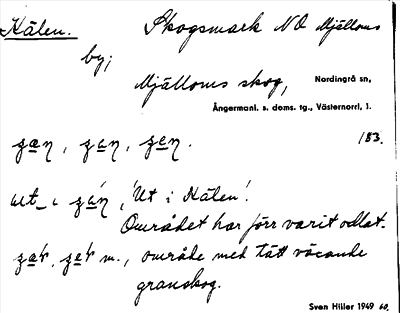 Kälen. Skogsmark NO Mjälloms
by;
Mjälloms skog, Nordingrå sn,
Ångermanl. s. doms. tg., Västernorrl. l.
183.
'Ut i Kälen'.
Området har förr varit odlat.
m., område med tätt växande
granskog.
Sven Hiller 1949 60,